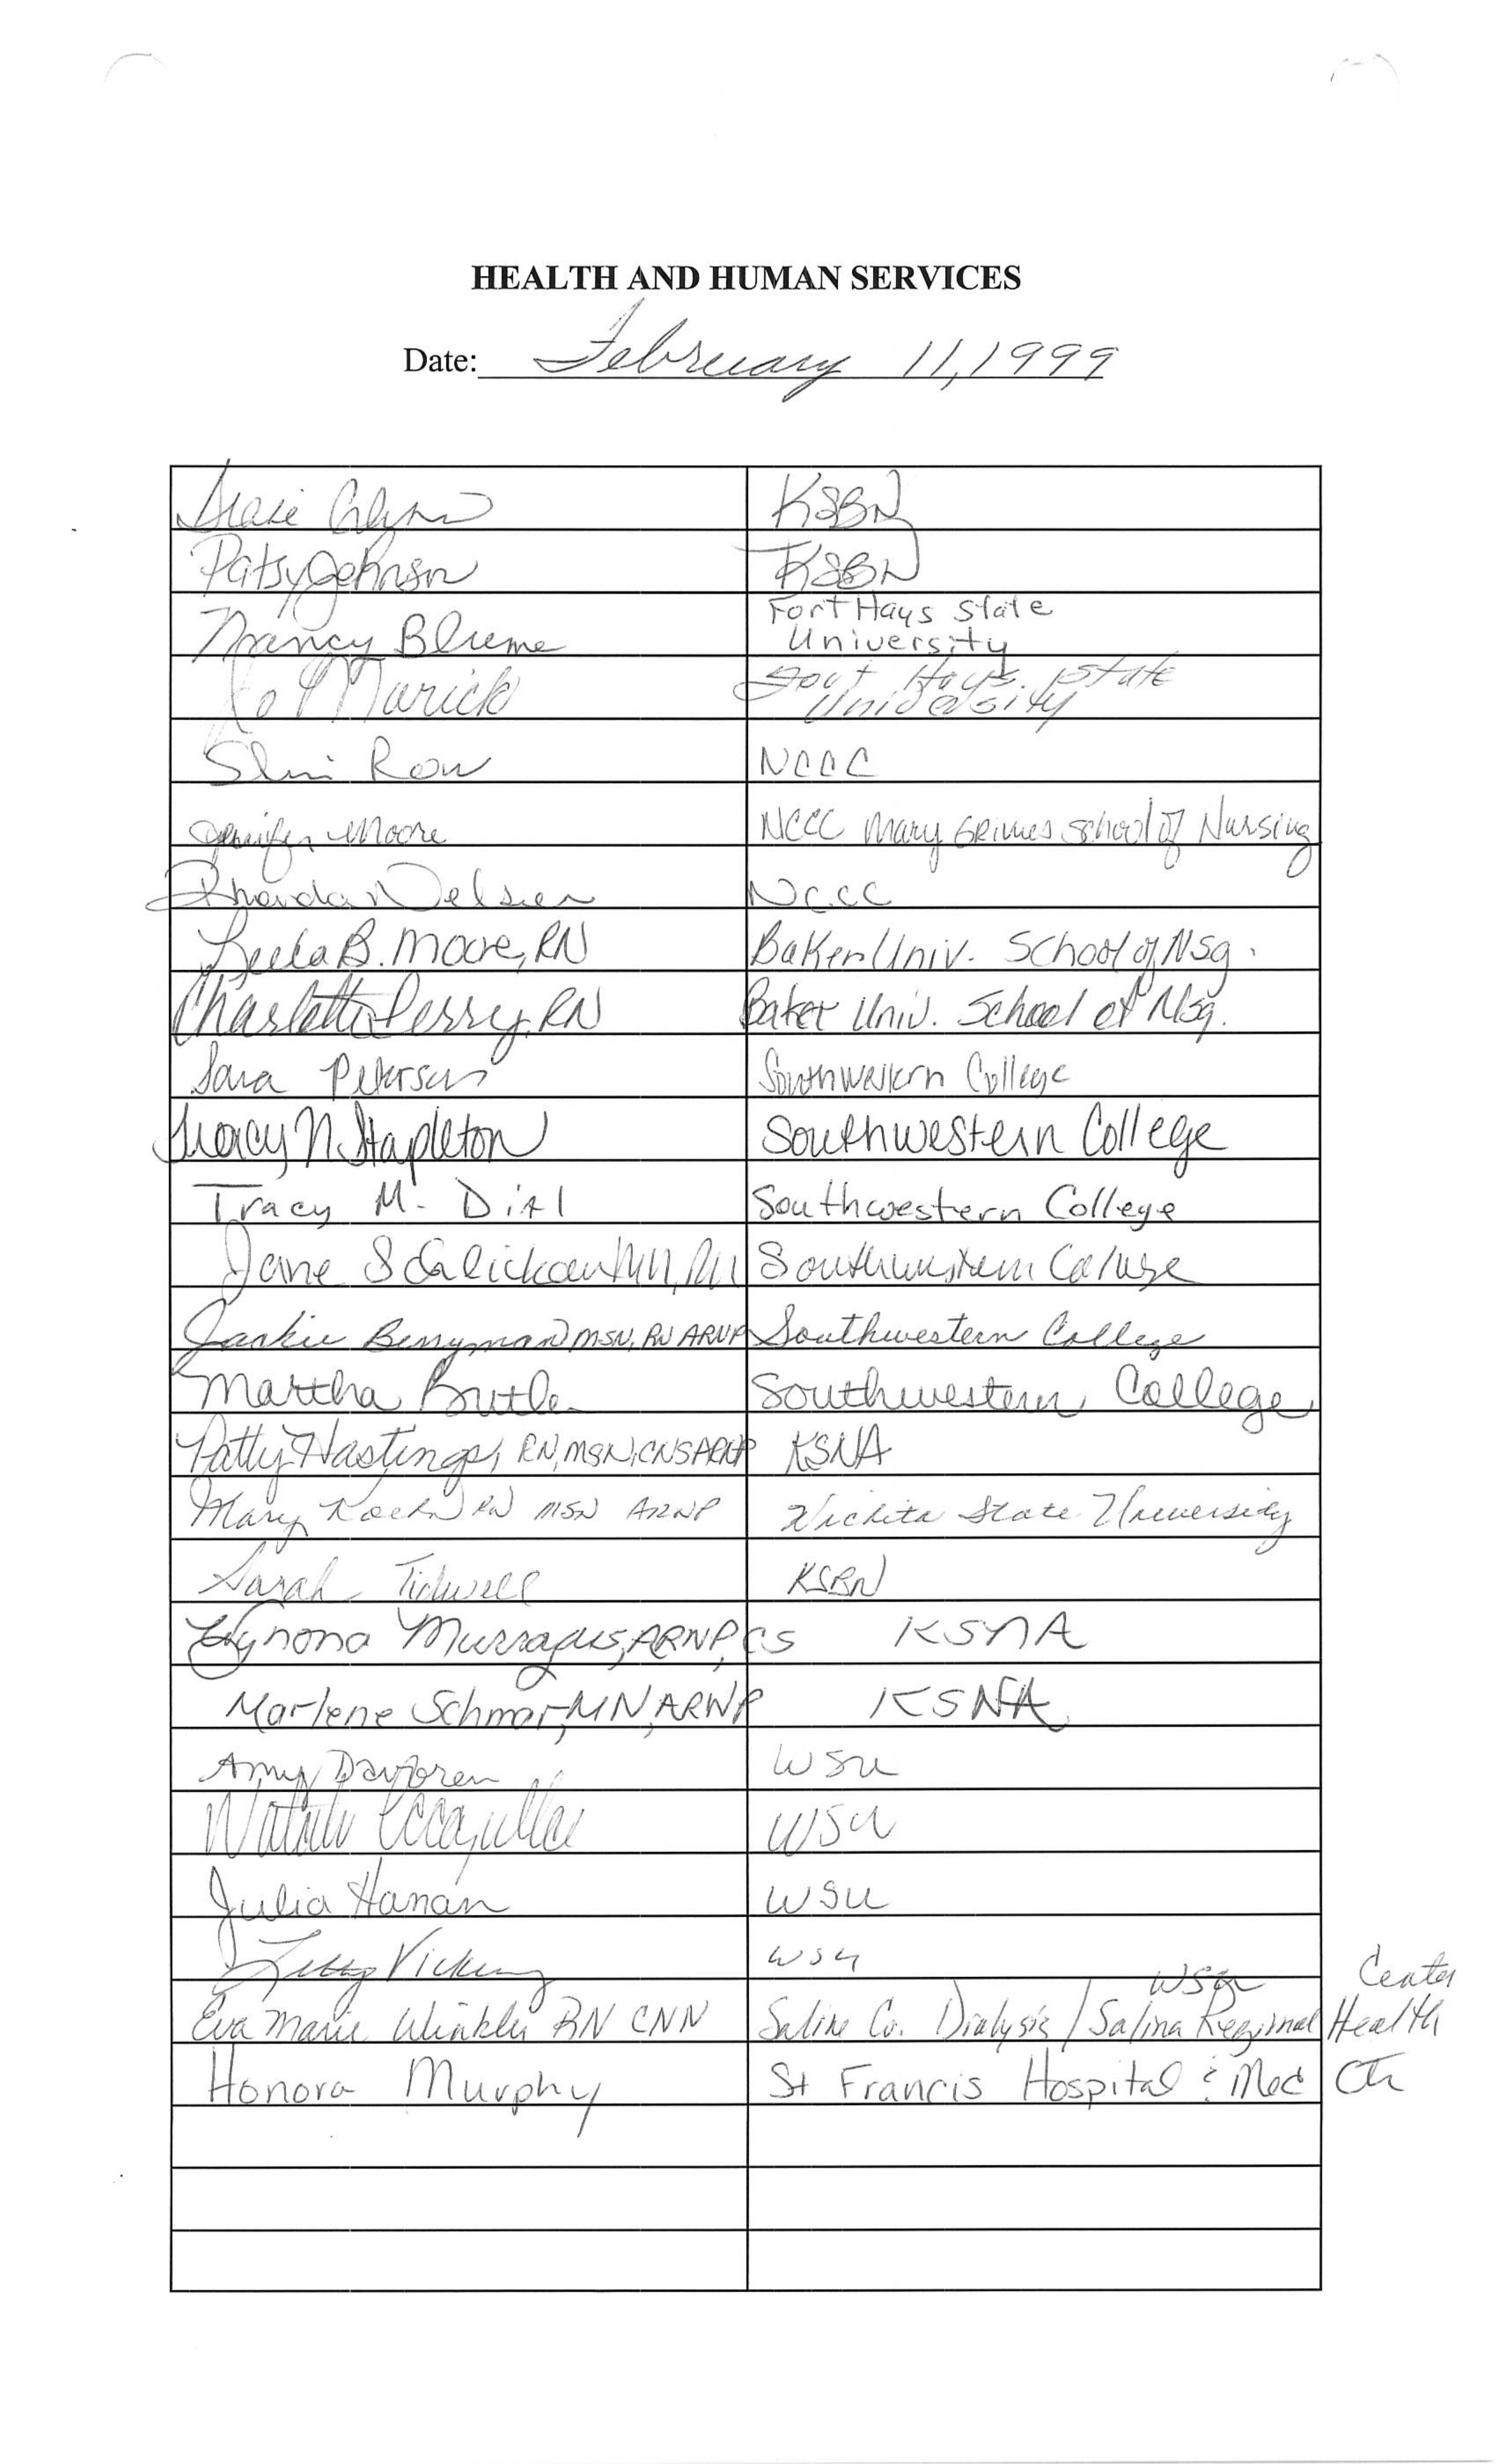 HEALTH AND HUMAN SERVICES
Date: February 11, 1999
KSBN
Patsy Johnson KSBN
Nancy Blume Fort Hays State
University
Jo Marick Fort Hays State
University
NCCC
Jennifer Moore NCCC Mary Grimes School of Nursing
Rhonda Nelson NCCC
B. Moore, RN Baker Univ. School of Nsg.
Charlotte Perry, RN Baker Univ. School of Nsg.
Sara Petersen Southwestern College
Tracy N. Stapleton Southwestern College
Tracy M. Dial Southwestern College
Jane Schlickau MN, RN Southwestern College
Jackie Berryman MSN, RN ARNP Southwestern College
Martha Butler Southwestern College
Patty Hastings, RN, MSN, CNS ARNP KSNA
Mary Koehn RN MSN ARNP Wichita State University
Sarah Tidwell KSBN
ARNP, CS KSNA
Marlene Schmar, MN, ARNP KSNA
Amy Davoren WSU
WSU
Julia Hanan WSU
WSU
WSU Center
Eva Marie Winkler RN CNN Saline Co. Dialysis / Salina Regional Health
Honora Murphy St Francis Hospital & Med Ctr